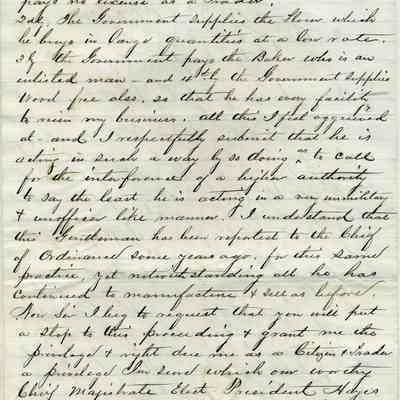 pays no license as a Trader.
2dly, The Government supplies the Flour which
he buys in Large quantities at a Low rate.
3ly the Government pays the Baker who is an
enlisted man - and 4thly the Government supplies
Wood free also, so that he has every facility
to ruin my business. All this I feel aggrieved
at - and I respectfully submit that he is
acting in such a way by so doing as to call
for the interference of a higher authority
to say the least he is acting in a very unmilitary
& unofficer like manner. I understand that
this Gentleman has been reported to the Chief
of Ordinance some years ago, for this same
practice, yet notwithstanding all he has
continued to manufacture & sell as before.
Now Sir I beg to request that you will put
a stop to this proceeding & grant me the
privilege & right due me as a Citizen & Trader
a privilege I'm send which our worthy
Chief Magistrate Elect President Hayes